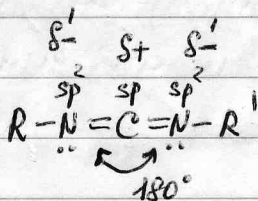 δ-' δ+ δ-'
sp² sp sp²
R-N̤=C=N̤-R'
180°